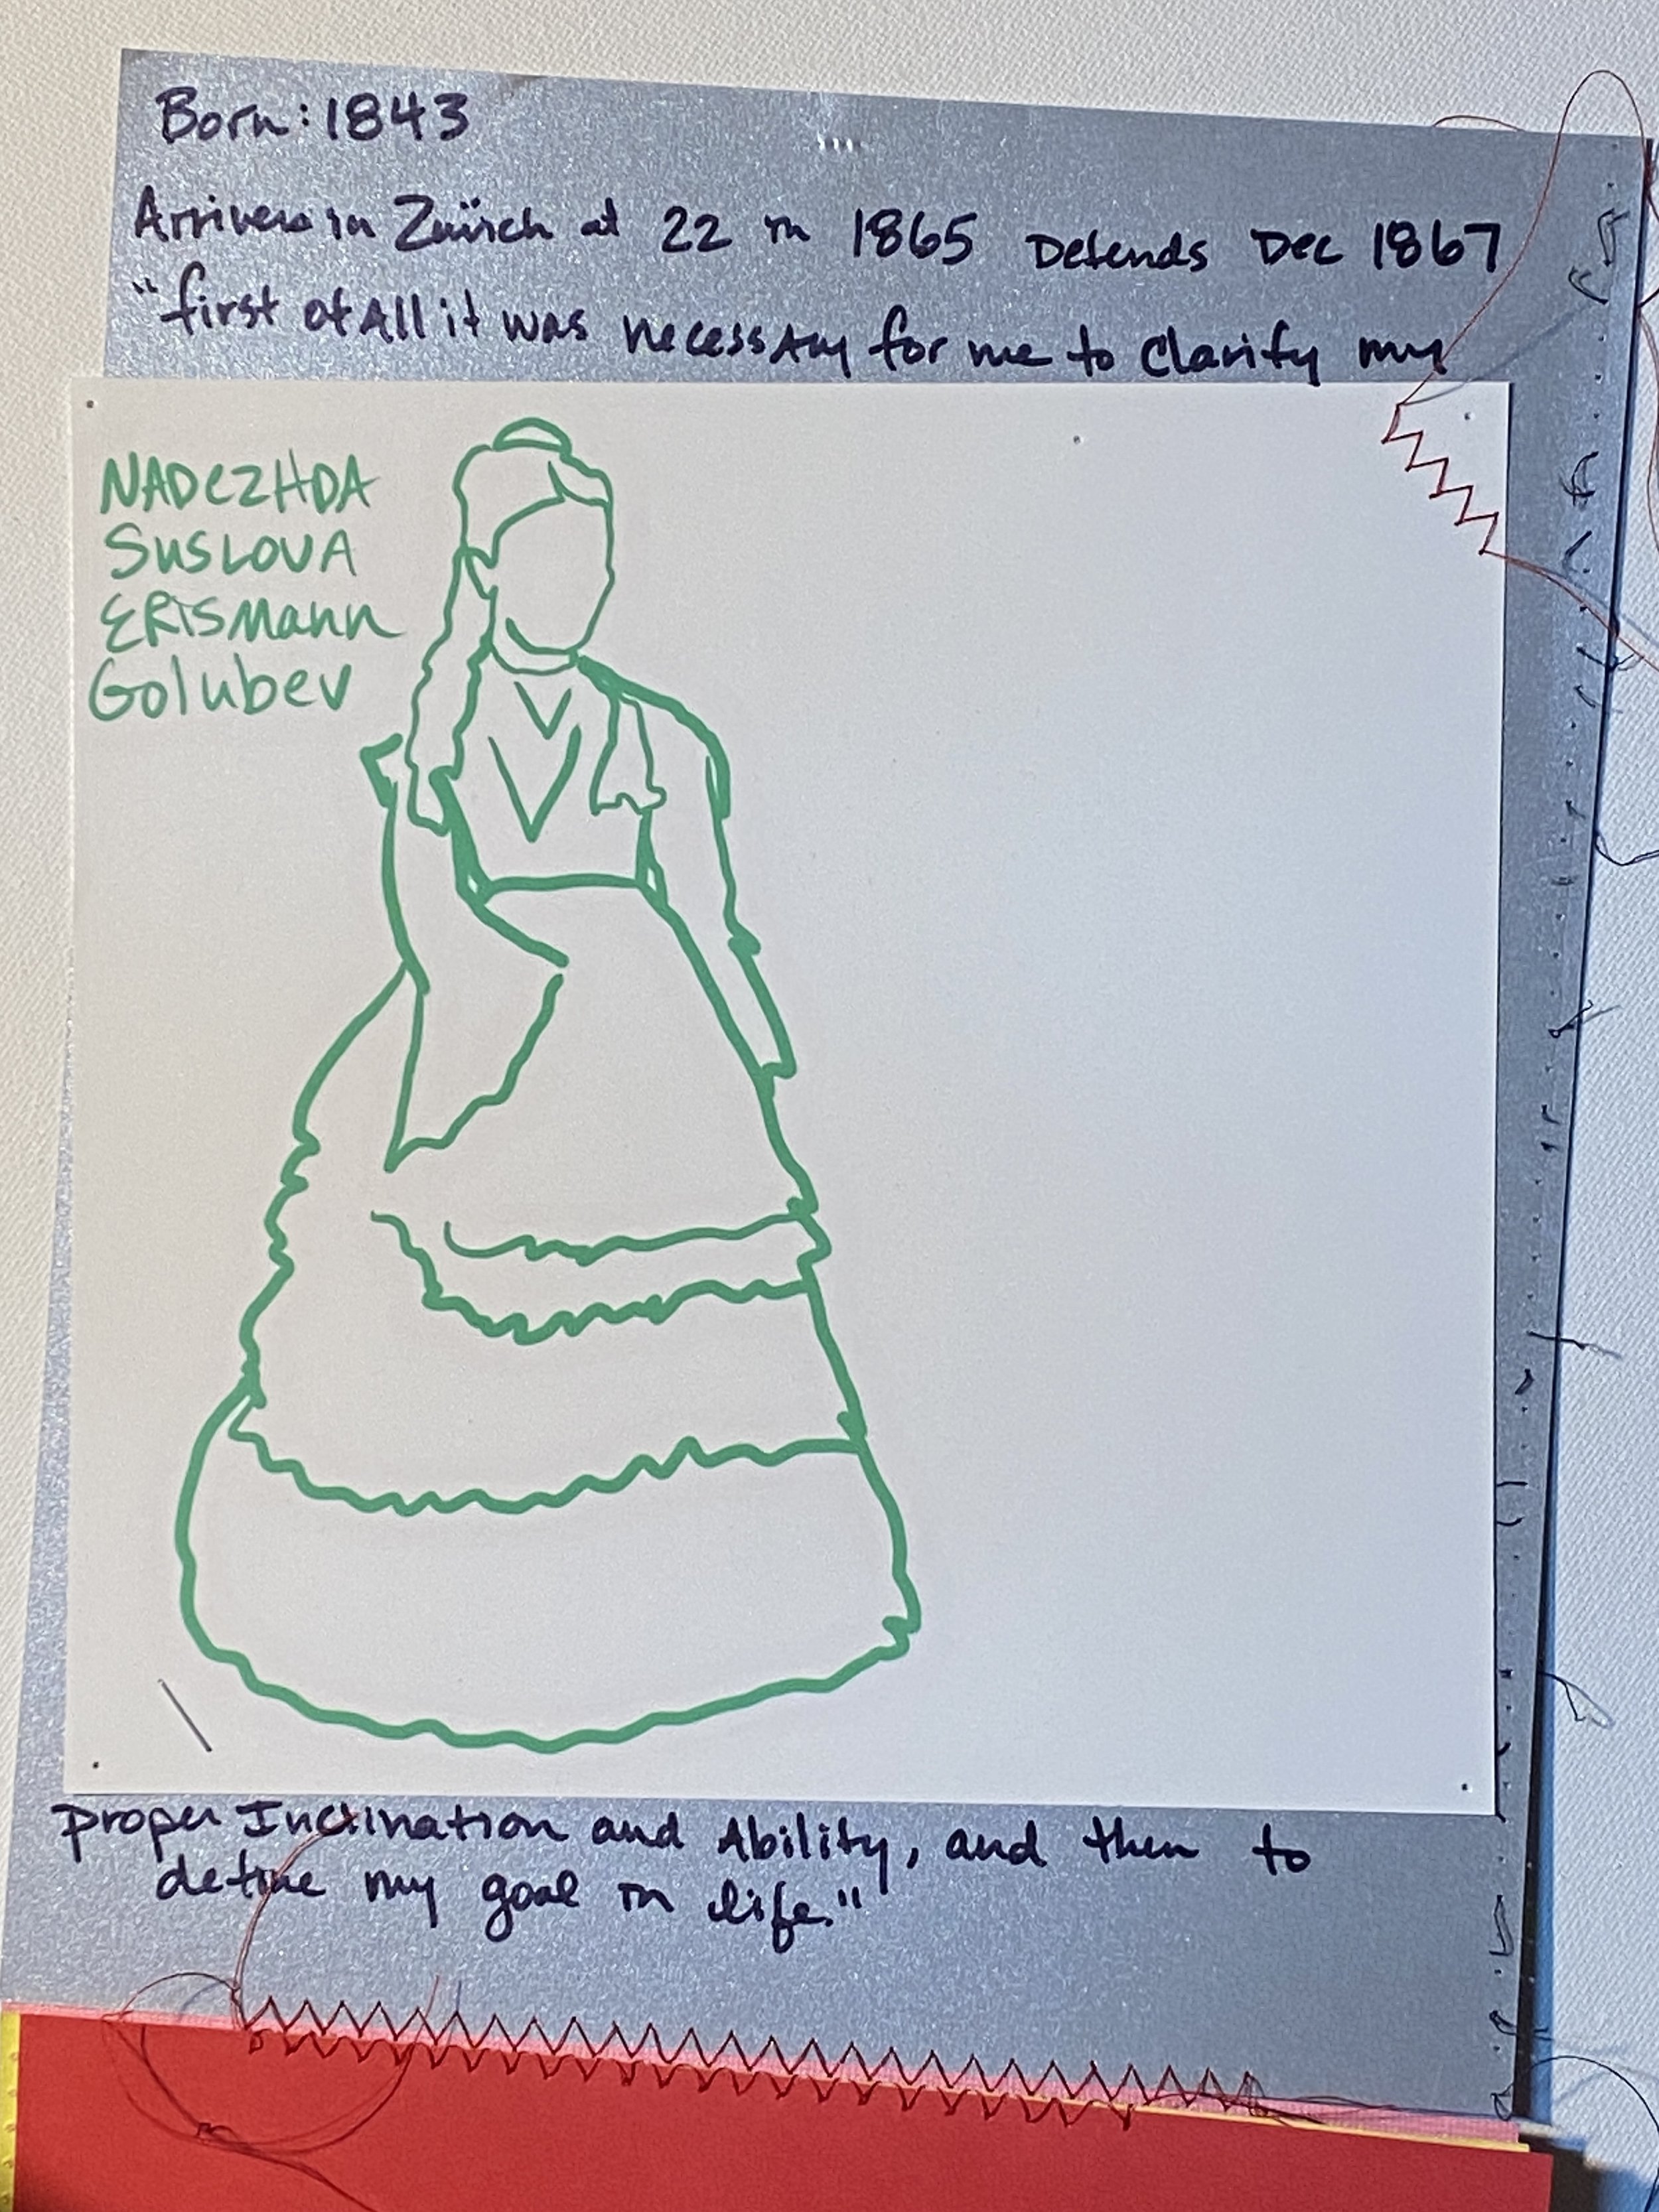 Born: 1843
Arrives in Zürich at 22 in 1865 Defends Dec 1867
"first of All it was necessary for me to Clarify my
NADEZHDA
SUSLOVA
ERISMANN
Golubev
proper Inclination and Ability, and then to
define my goal in life."